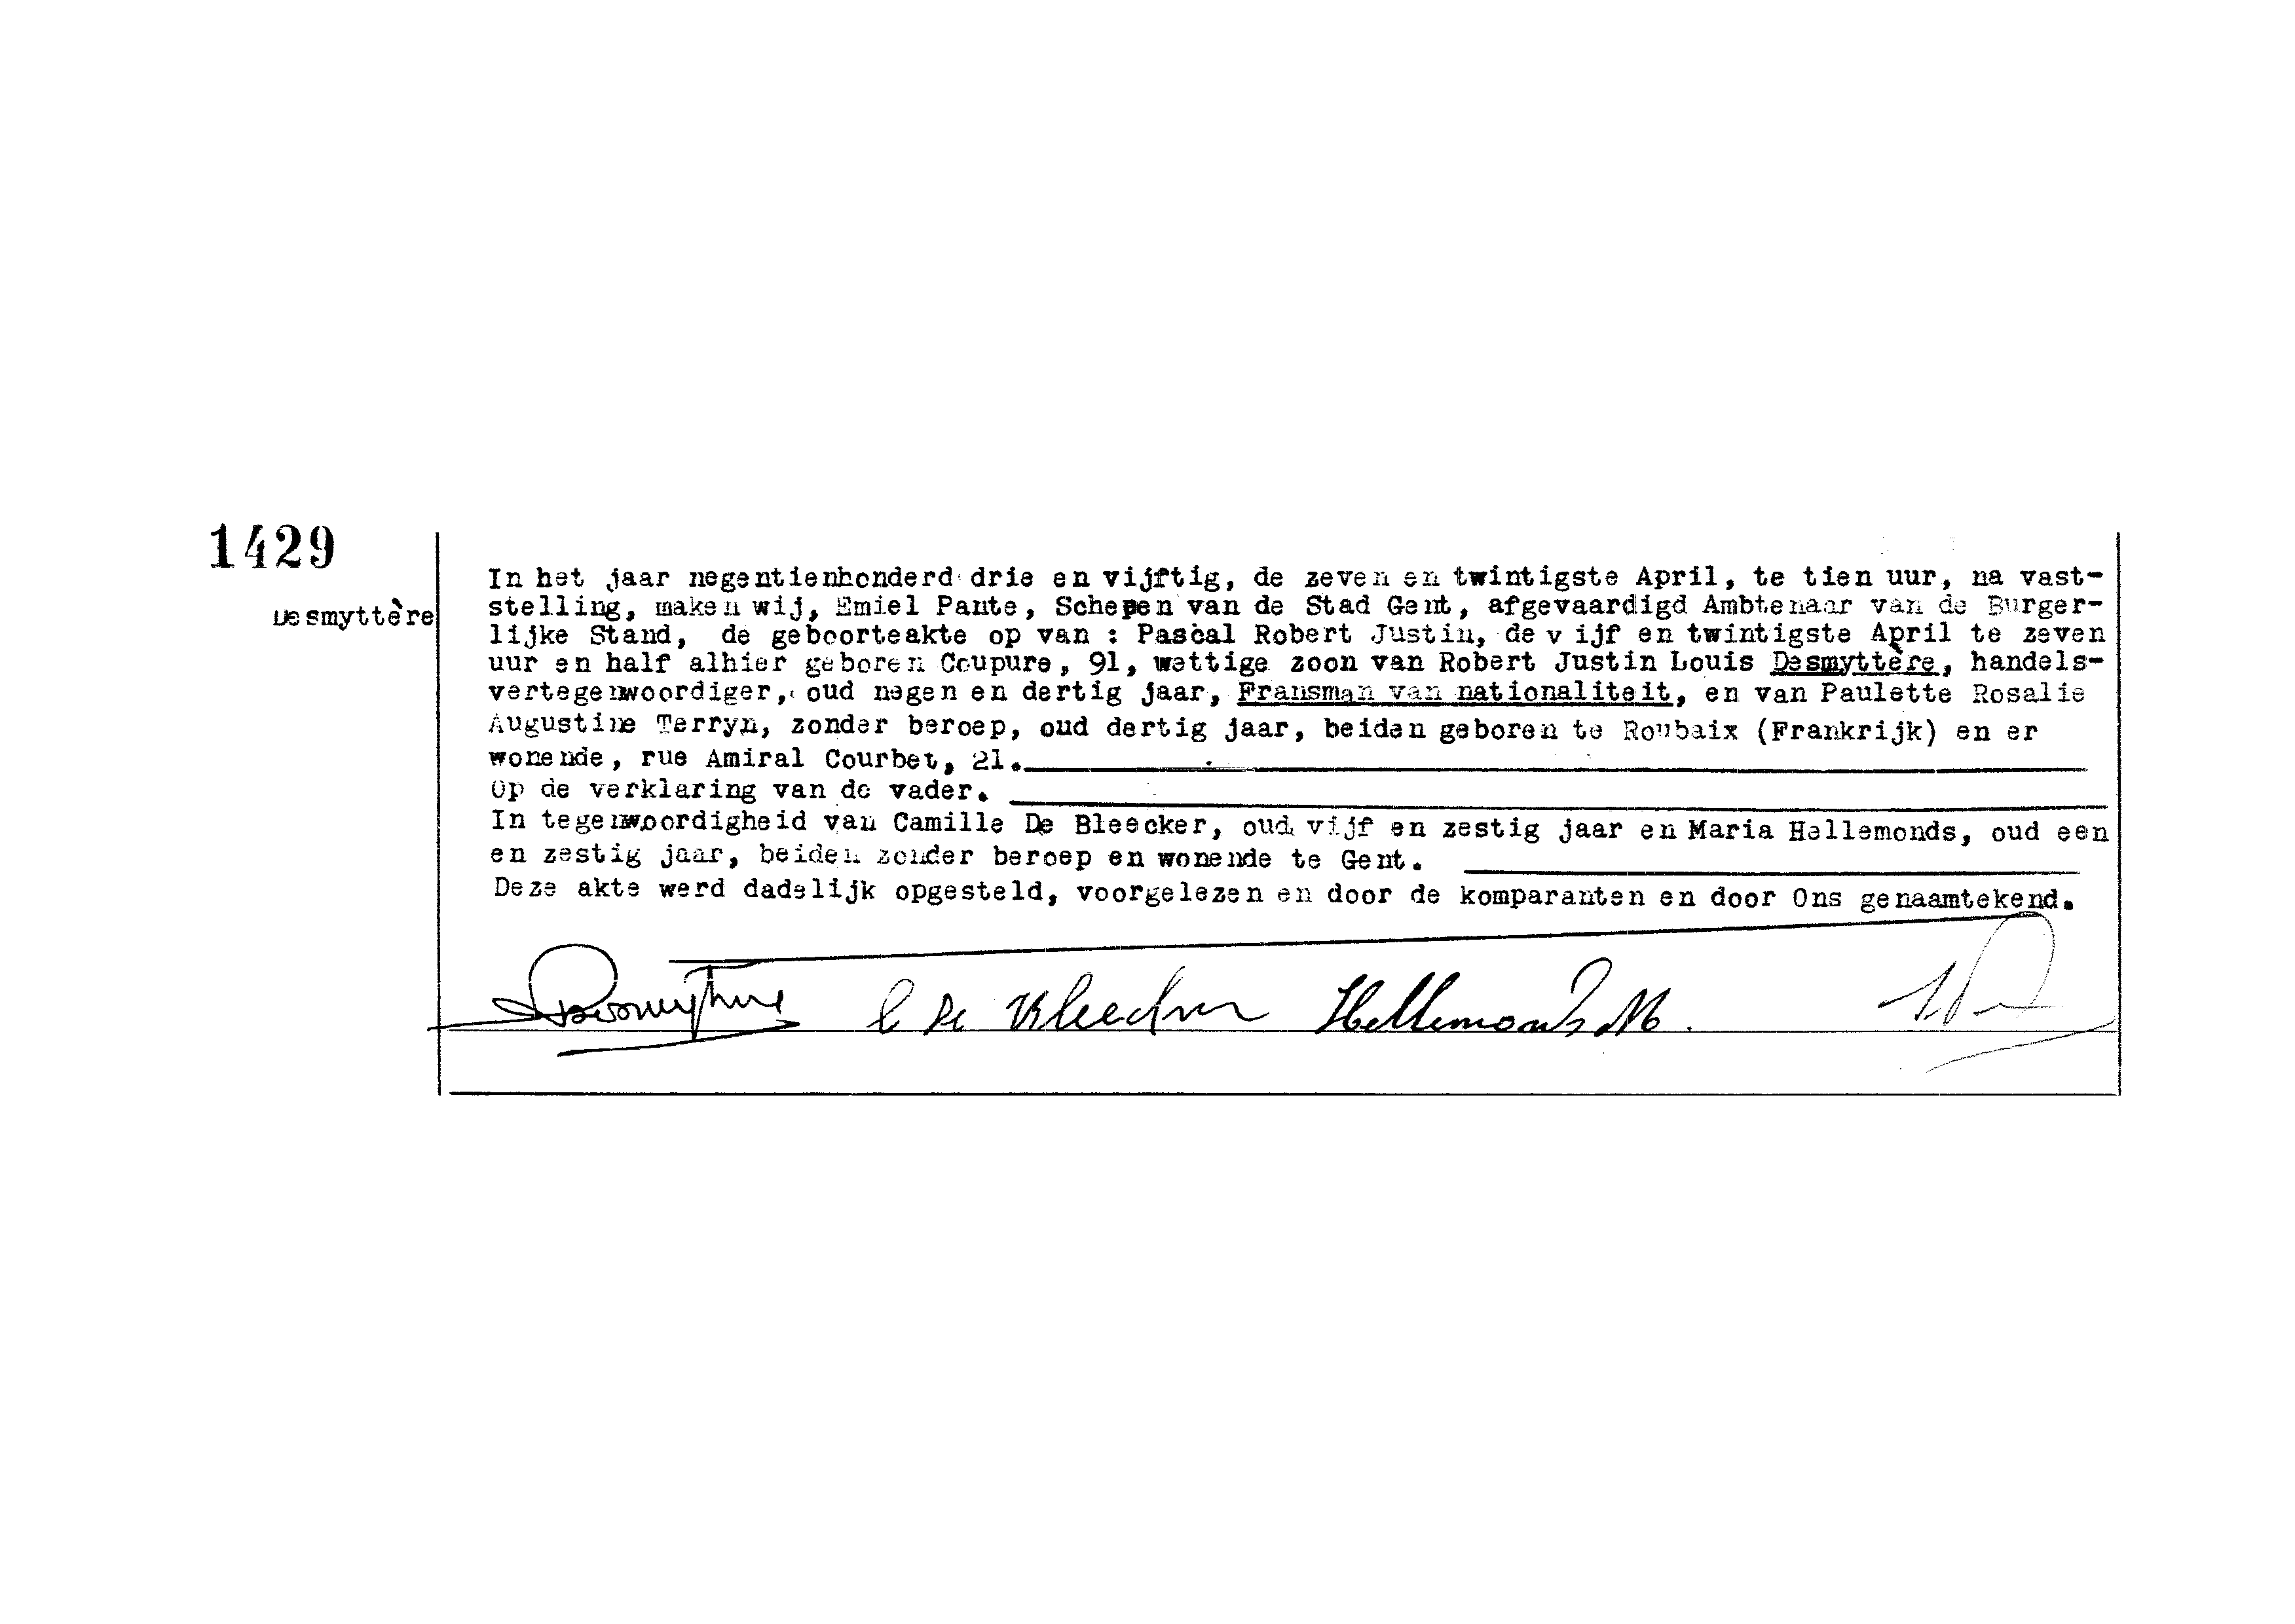 1429
Desmyttère
In het jaar negentienhonderd drie en vijftig, de zeven en twintigste April, te tien uur, na vast-
stelling, maken wij, Emiel Pante, Schepen van de Stad Gent, afgevaardigd Ambtenaar van de Burger-
lijke Stand, de geboorteakte op van : Pascal Robert Justin, de vijf en twintigste April te zeven
uur en half alhier geboren Coupure, 91, wettige zoon van Robert Justin Louis Desmyttère, handels-
vertegenwoordiger, oud negen en dertig jaar, Fransman van nationaliteit, en van Paulette Rosalie
Augustine Terryn, zonder beroep, oud dertig jaar, beiden geboren te Roubaix (Frankrijk) en er
wonende, rue Amiral Courbet, 21.
Op de verklaring van de vader.
In tegenwoordigheid van Camille De Bleecker, oud vijf en zestig jaar en Maria Hellemonds, oud een
en zestig jaar, beiden zonder beroep en wonende te Gent.
Deze akte werd dadelijk opgesteld, voorgelezen en door de komparanten en door Ons genaamtekend.
Desmyttère C De Bleecker Hellemonds M.